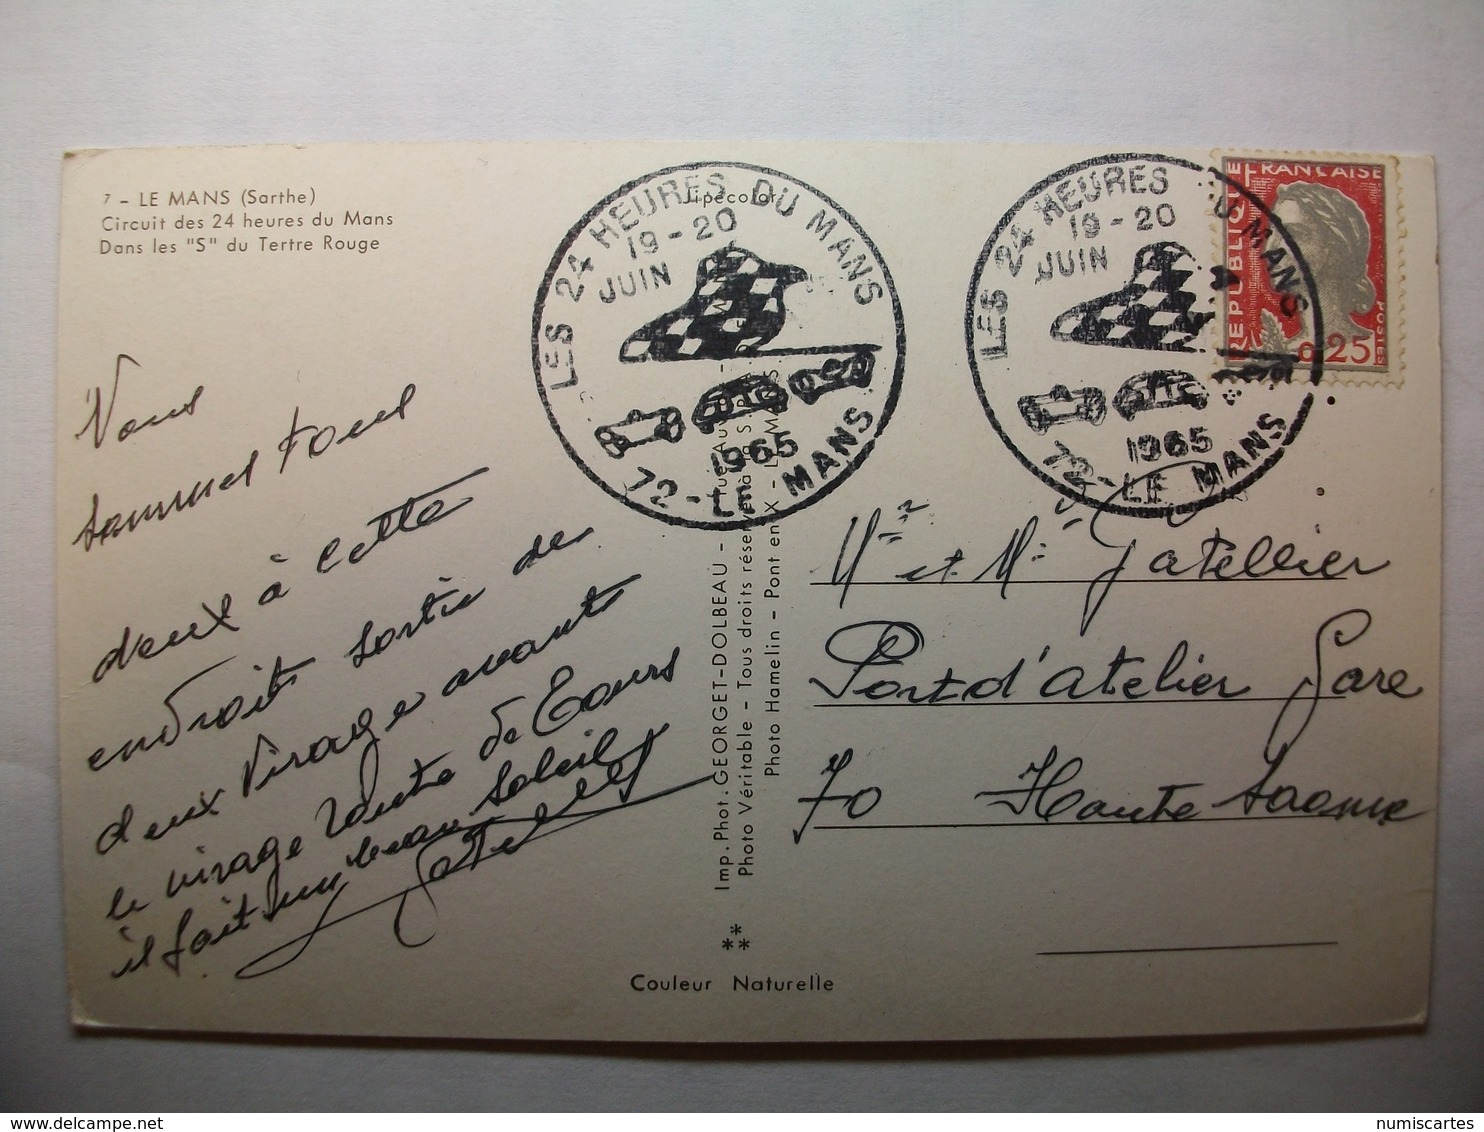 7 - LE MANS (Sarthe)
Circuit des 24 heures du Mans
Dans les "S" du Tertre Rouge
Lipecolor
LES 24 HEURES DU MANS
19-20
JUIN
1965
72-LE MANS
LES 24 HEURES DU MANS
19-20
JUIN
1965
72-LE MANS
REPUBLIQUE FRANCAISE
0,25
POSTES
Nous
sommes tous
deux à cette
endroit sortie des
deux virage avante
le virage route de Tours
il fait un beau soleil
Imp. Phot. GEORGET-DOLBEAU
Photo Véritable - Tous droits réservés à
Photo Hamelin - Pont en X - LE MANS.
Couleur Naturelle
et Jatellier
Port d'atelier Gare
70 Haute Saone
numiscartes